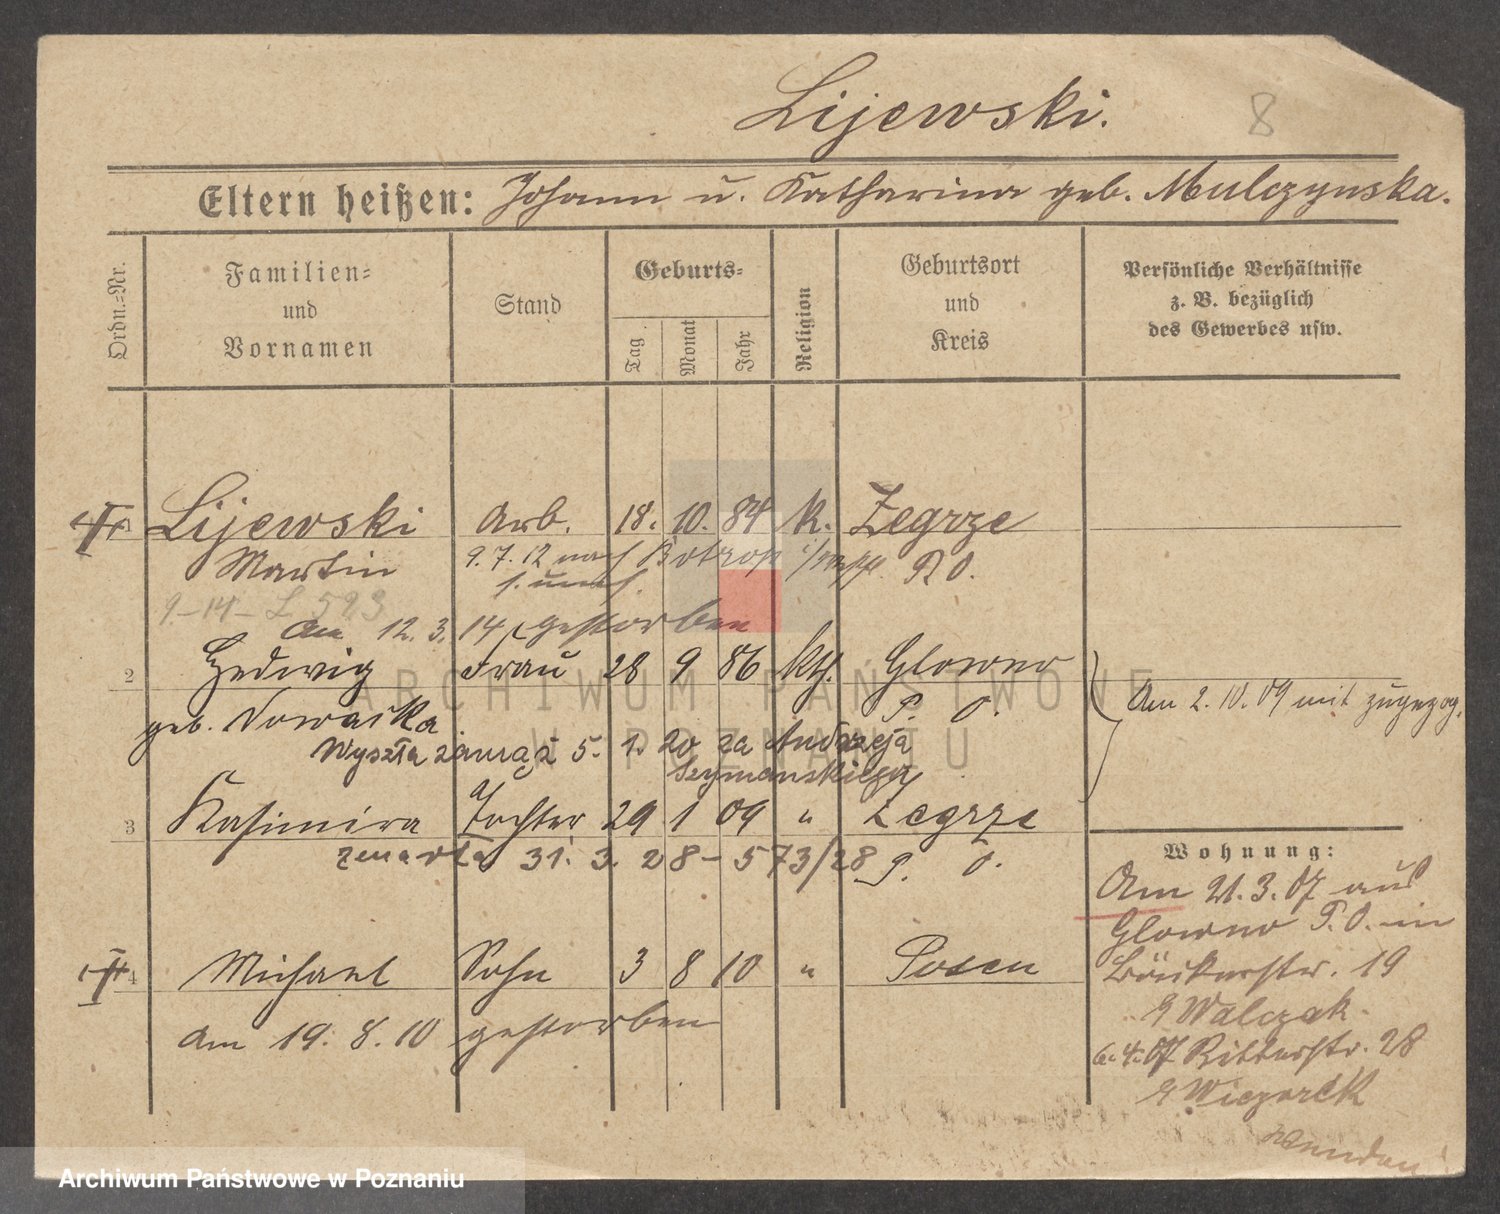 Lijewski. 8
Eltern heißen: Johann u. Katharina geb. Mulczynska.
Ordn.=Nr.
Familien=
und
Vornamen
Stand
Geburts=
Tag
Monat
Jahr
Religion
Geburtsort
und
Kreis
Persönliche Verhältnisse
z. B. bezüglich
des Gewerbes usw.
1 Lijewski Arb. 18. 10. 84 k. Zegrze
Martin 9. 7. 12 nach Botrop i/Westf. P. O.
9-14- L 593
Am 12. 3. 14 gestorben
2 Hedwig Frau 28 9 86 kth. Glowno
geb. Nowacka P. O.
Am 2. 10. 09 mit zugezog.
Wyszła zamąż 5. 1. 20 za Andrzeja
Szymanskiego
3 Kasimira Tochter 29 1 09 " Zegrze
zmarła 31. 3. 28 - 573/28 P. O.
4 Michael Sohn 3 8 10 " Posen
Am 19. 8. 10 gestorben
Wohnung:
Am 21. 3. 07 aus
Glowno P. O. in
Bäckerstr. 19
Walczak.
6. 4. 07 Ritterstr. 28
Wieczorek
wenden!
ARCHIWUM PAŃSTWOWE
W POZNANIU
Archiwum Państwowe w Poznaniu